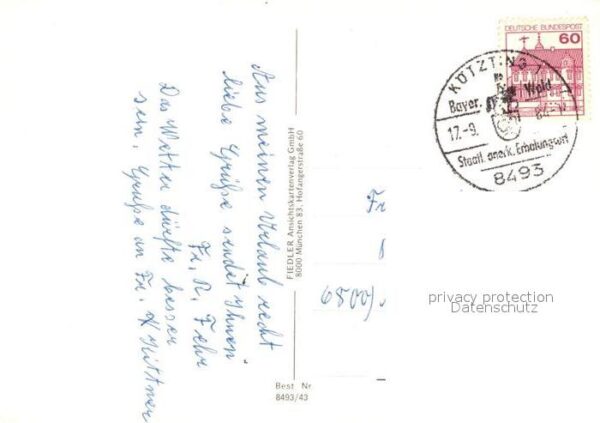 Aus meinen Urlaub recht
liebe Grüße sendet Ihnen
Fr. R. Fehr
Das Wetter dürfte besser
sein, Grüße an Fr. K. Kittner
FIEDLER Ansichtskartenverlag GmbH
8000 München 83. Hofangerstraße 60
Best Nr
8493/43
DEUTSCHE BUNDESPOST
60
KÖTZTING 1
Bayer. Wald
17.-9.
Staatl. anerk. Erholungsort
8493
Fr
6800/
privacy protection
Datenschutz